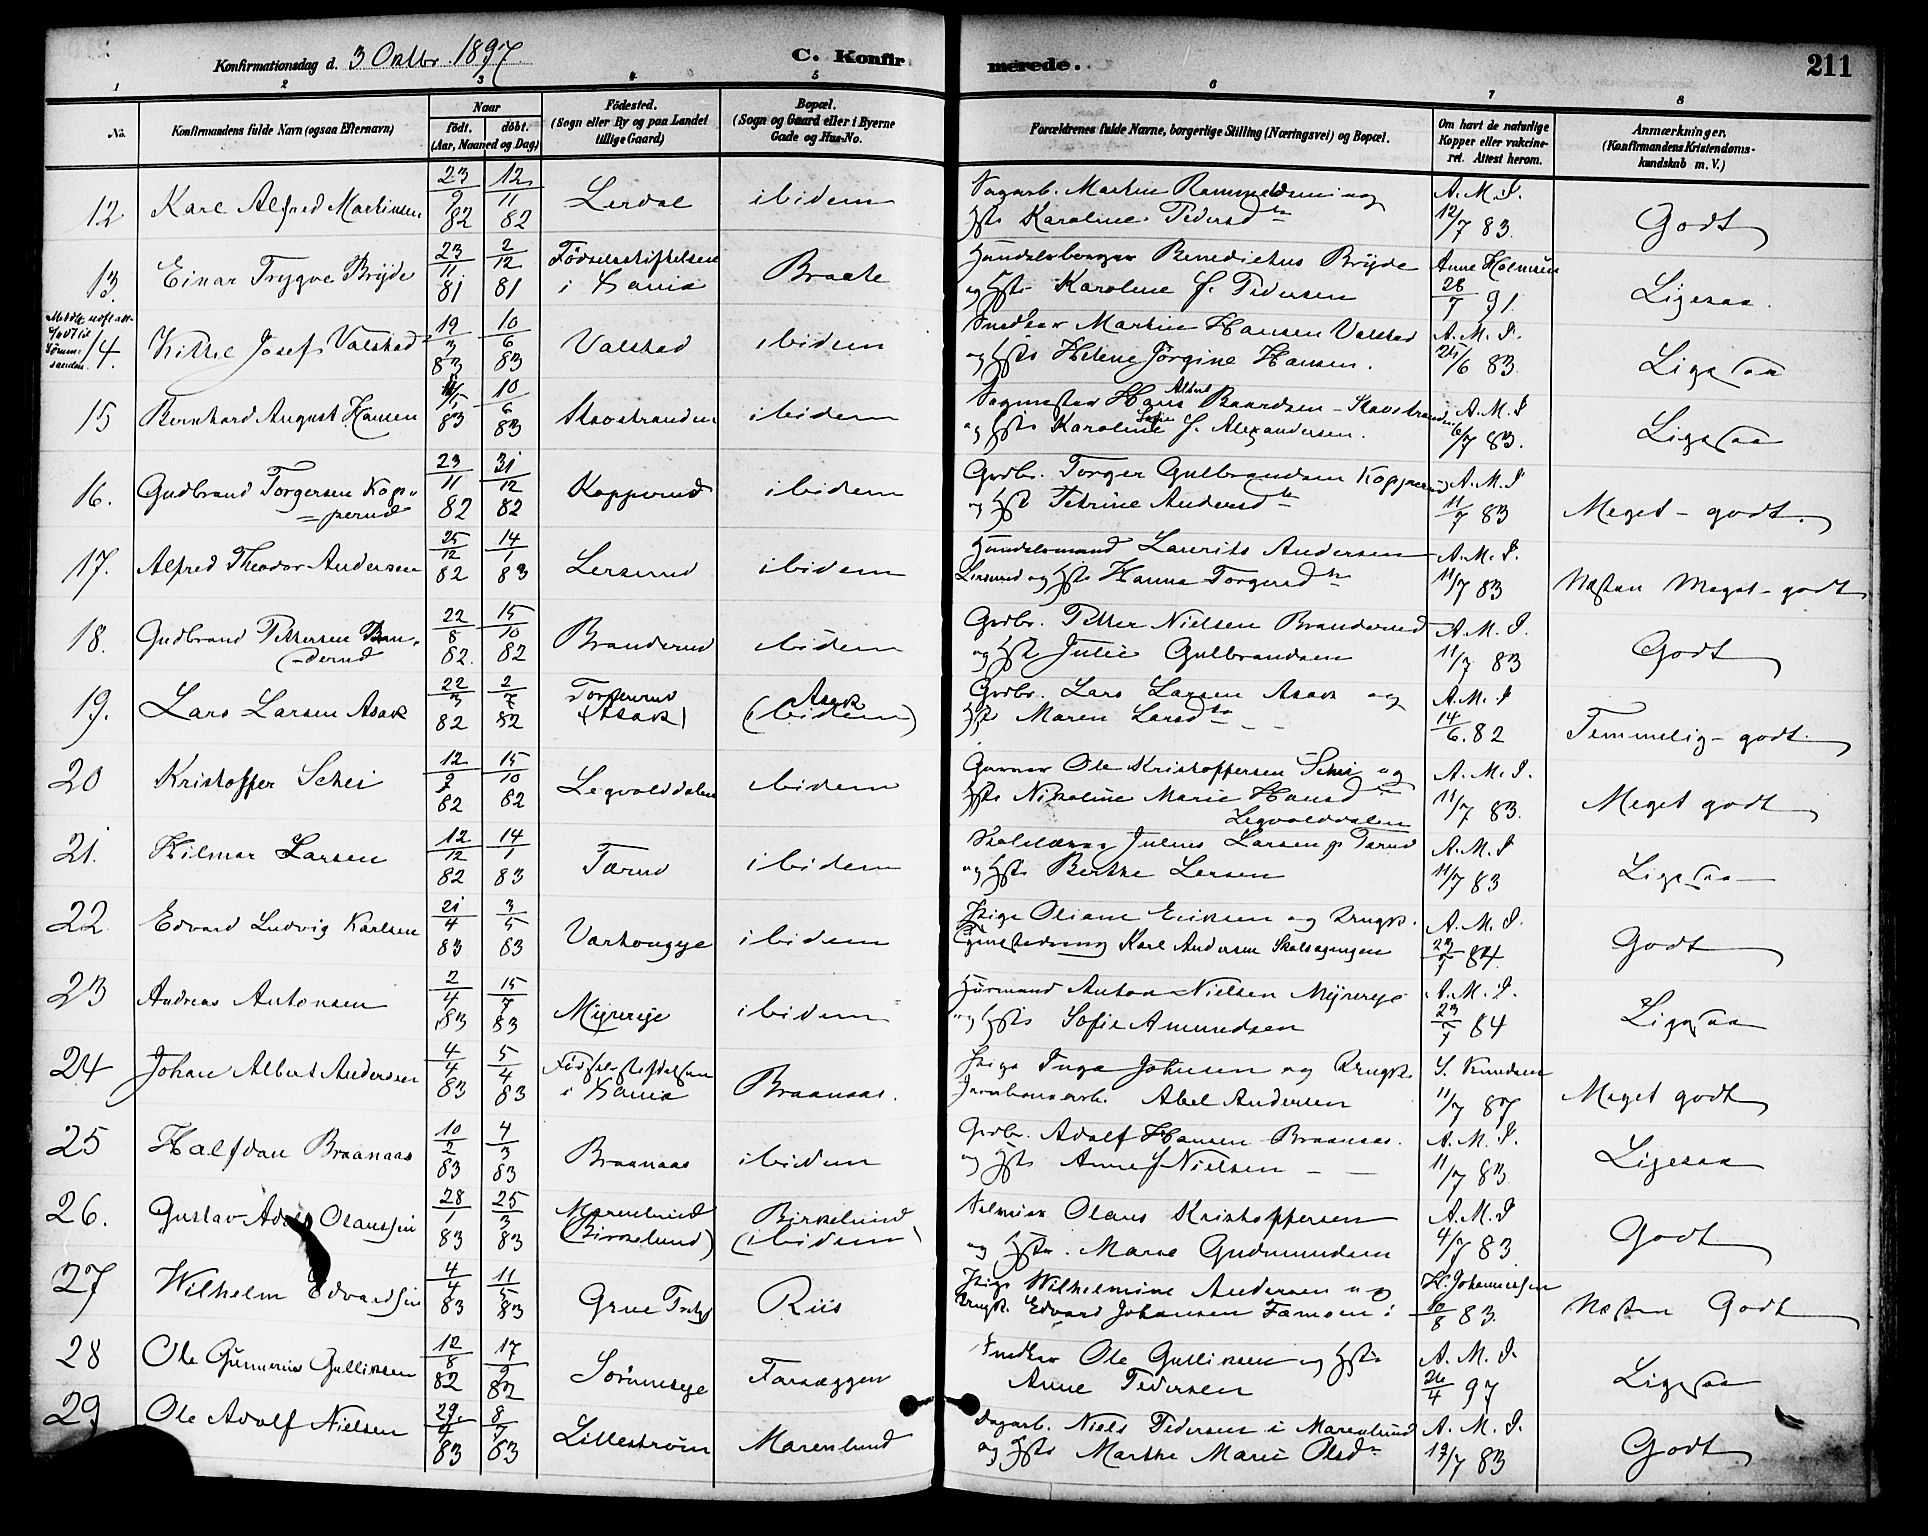 Konfirmationsdag d. 3 Oktbr. 1897. C. Konfirmerede. 211
1 2 3 4 5 6 7 8
No. Konfirmandens fulde Navn (ogsaa Efternavn) Naar født. døbt. (Aar, Maaned og Dag) Födested. (Sogn eller By og paa Landet tillige Gaard) Bopæl. (Sogn og Gaard eller i Byerne Gade og Hus-No. Forældrenes fulde Navne, borgerlige Stilling (Næringsvei) og Bopæl. Om havt de naturlige Kopper eller vakcineret. Attest herom. Anmærkninger. (Konfirmandens Kristendomskundskab m. V.)
12 Karl Alfred Martinsen 23/9 82 12/11 82 Lerdal ibidem Sagarb. Martin og Hstr Karoline Pedersdtr A.M.I. 12/7 83. Godt
13. Einar Trygve Bryde 23/11 81 2/12 81 Fødselsstiftelsen i Xania Braate Handelsborger Benedictus Bryde og Hstr Karoline f. Pedersen Anne Holmsen 28/7 91. Ligesaa.
14. Kittil Josef Valstad 19/3 83 10/6 83 Valstad ibidem Snedker Martin Hansen Valstad og Hstr Helene Jørgine Hansen. A.M.I. 25/6 83. Ligesaa
15 Bernhard August Hansen 83 10/6 83 Skovstranden ibidem Sagmester Hans Albert Baardsen - Skovstranden og Hstr Karoline Sofie f. Alexandersen. A.M.I 6/7 83. Ligesaa
16. Gudbrand Torgersen Kopperud 23/11 82 31/12 82 Kopperud ibidem Grdbr. Torger Gulbrandsen Kopperud og Hst Petrine Andersdtr A.M.I 11/7 83 Meget-godt.
17. Alfred Theodor Andersen 25/12 82 14/1 83 Lersund ibidem Handelsmand Laurits Andersen Lersund og Hstr Hanna Torgersdtr A.M.I. 11/7 83 Næsten Meget-godt
18. Gudbrand Pettersen Branderud 22/8 82. 15/10 82 Branderud ibidem Grdbr. Petter Nielsen Branderud og Hstr Julie Gulbrandsen A.M.I. 11/7 83 Godt
19. Lars Larsen Asak 22/3 82 2/7 82 Torperud (Asak) Asak (ibidem) Grdbr. Lars Larsen Asak og Hstr Maren Larsdtr A.M.I 14/6.82 Temmelig-godt.
20 Kristoffer Schei 12/9 82 15/10 82 Leqvolddalen ibidem Garver Ole Kristoffersen Schei og Hstr Nikoline Marie Hansdtr Leqvolddalen A.M.I. 11/7 83. Meget godt
21. Hilmar Larsen 12/12 82 14/1 83 Tærud ibidem Skolelærer Julius Larsen p. Tærud og Hstr Berthe Larsen A.M.I 11/7 83 Ligesaa
22 Edvard Ludvig Karlsen 21/4 83 3/5 83 Varhougeye ibidem Pige Oliane Eriksen og Ungk. Karl Andersen A.M.I. 23/7 84. Godt
23 Andreas Antonsen 2/4 83 15/7 83 Myrereje ibidem Husmand Anton Nielsen Myrereje og Hstr Sofie Amundsen A.M.I. 23/7 84 Ligesaa
24 Johan Albert Andersen 4/4 83 5/4 83 Fødselsstiftelsen i Xania Braanaas. Pige Inga Johnsen og Ungk. Jernbanearb. Abel Andersen S. Knudsen 11/7 87 Meget godt
25 Halfdan Braanaas 10/2 83 4/3 83 Braanaas ibidem Grdbr. Adolf Hansen Braanaas. og Hstr Anne f Nielsen A.M.I. 11/7 83. Ligesaa
26. Gustav Adolf Olaussen 28/1 83 25/3 83 Marenlund (Birkelund) Birkelund (ibidem) Selveier Olaus Kristoffersen og Hstr. Maren Gudmundsen A.M.I 4/7 83. Godt
27 Wilhelm Edvardsen 4/4 83 11/5 83 Grue Riis Pige Wilhelmine Andersen og Ungk. Edvard Johansen Famoen i H. Johannessen 10/8 83. Næsten Godt
28 Ole Gunerius Gulliksen 12/8 82 17/9 82 Sörumeye Farseggen Snedker Ole Gulliksen og Hstr Anne Pedersen A.M.I. 26/4 97 Ligesaa
29 Ole Adolf Nielsen 29./4 83 8/7 83 Lilleström Marenlund Dagarb. Niels Pedersen i Marenlund og Hstr Marthe Marie Olsdtr A.M.I. 12/7 83 Godt